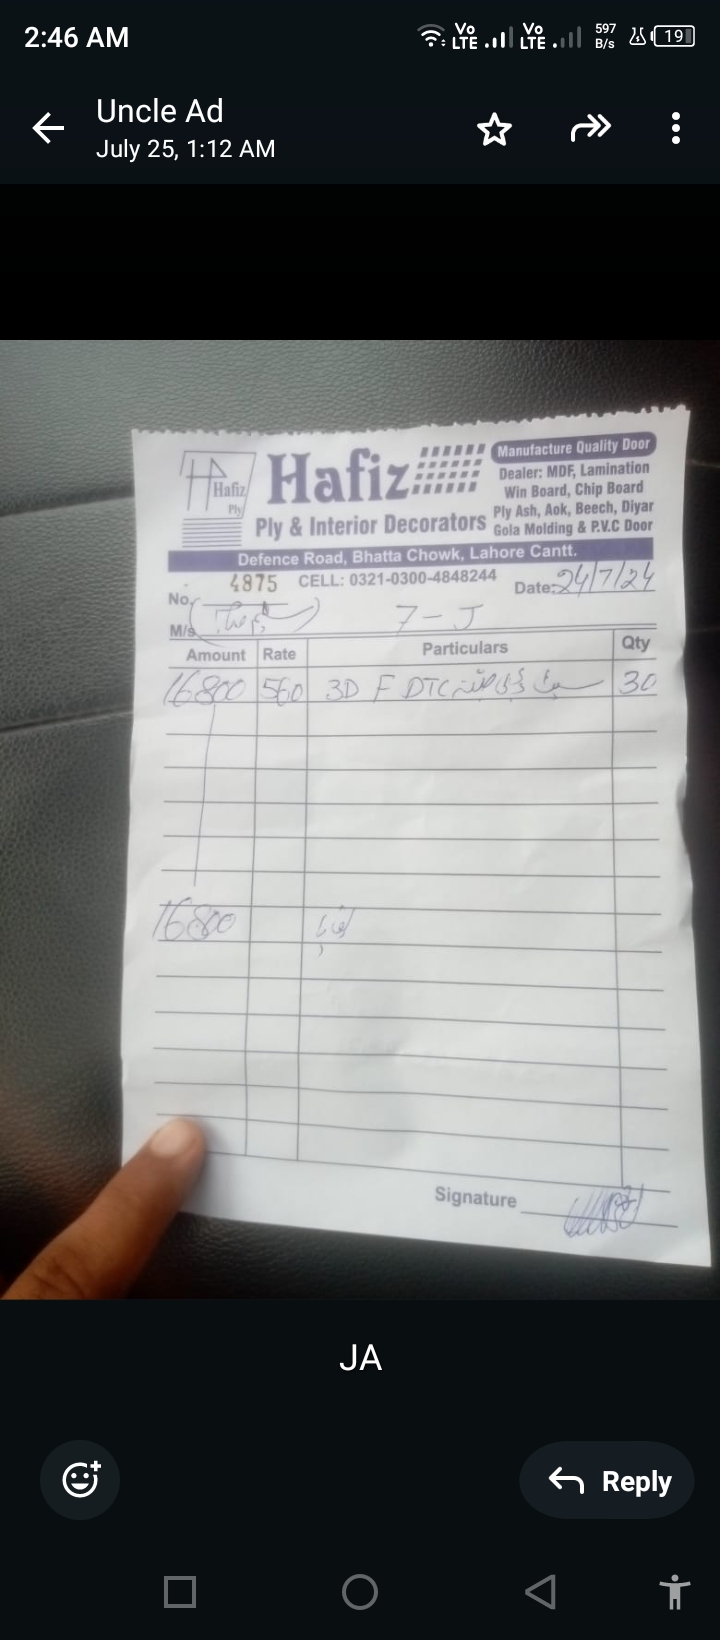 2:46 AM
Vo LTE Vo LTE 597 B/s 19
Uncle Ad
July 25, 1:12 AM
Hafiz Ply
Hafiz
Ply & Interior Decorators
Manufacture Quality Door
Dealer: MDF, Lamination
Win Board, Chip Board
Ply Ash, Aok, Beech, Diyar
Gola Molding & P.V.C Door
Defence Road, Bhatta Chowk, Lahore Cantt.
No. 4875 CELL: 0321-0300-4848244 Date: 24/7/24
M/s 7-J
Amount Rate Particulars Qty
16800 560 3D F DTC 30
16800
Signature
JA
Reply